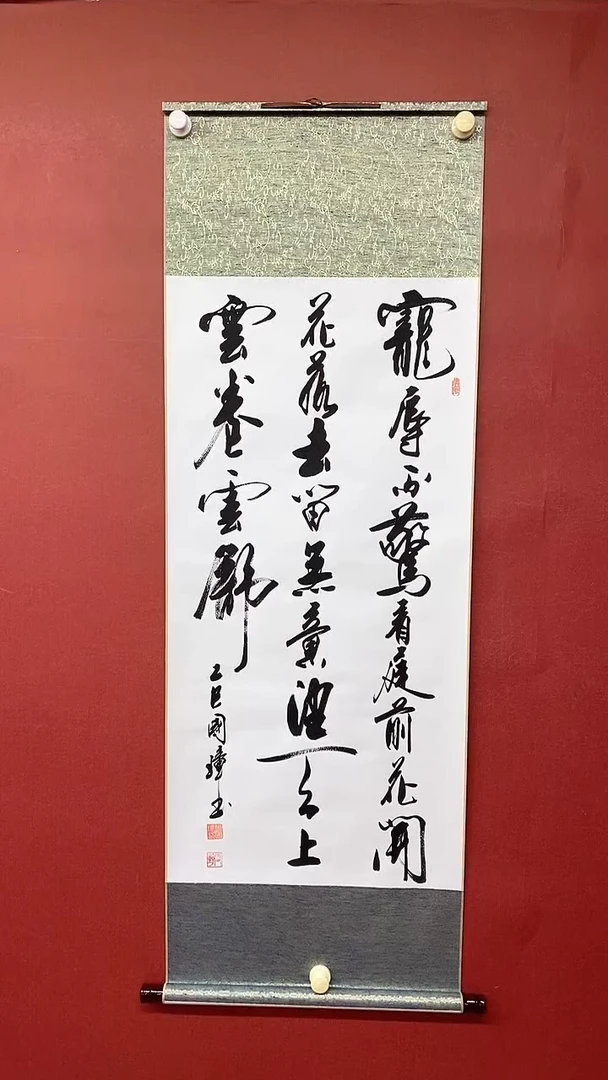 寵辱不驚看庭前花開
花落去留無意望天上
雲卷雲舒
乙巳國璋书